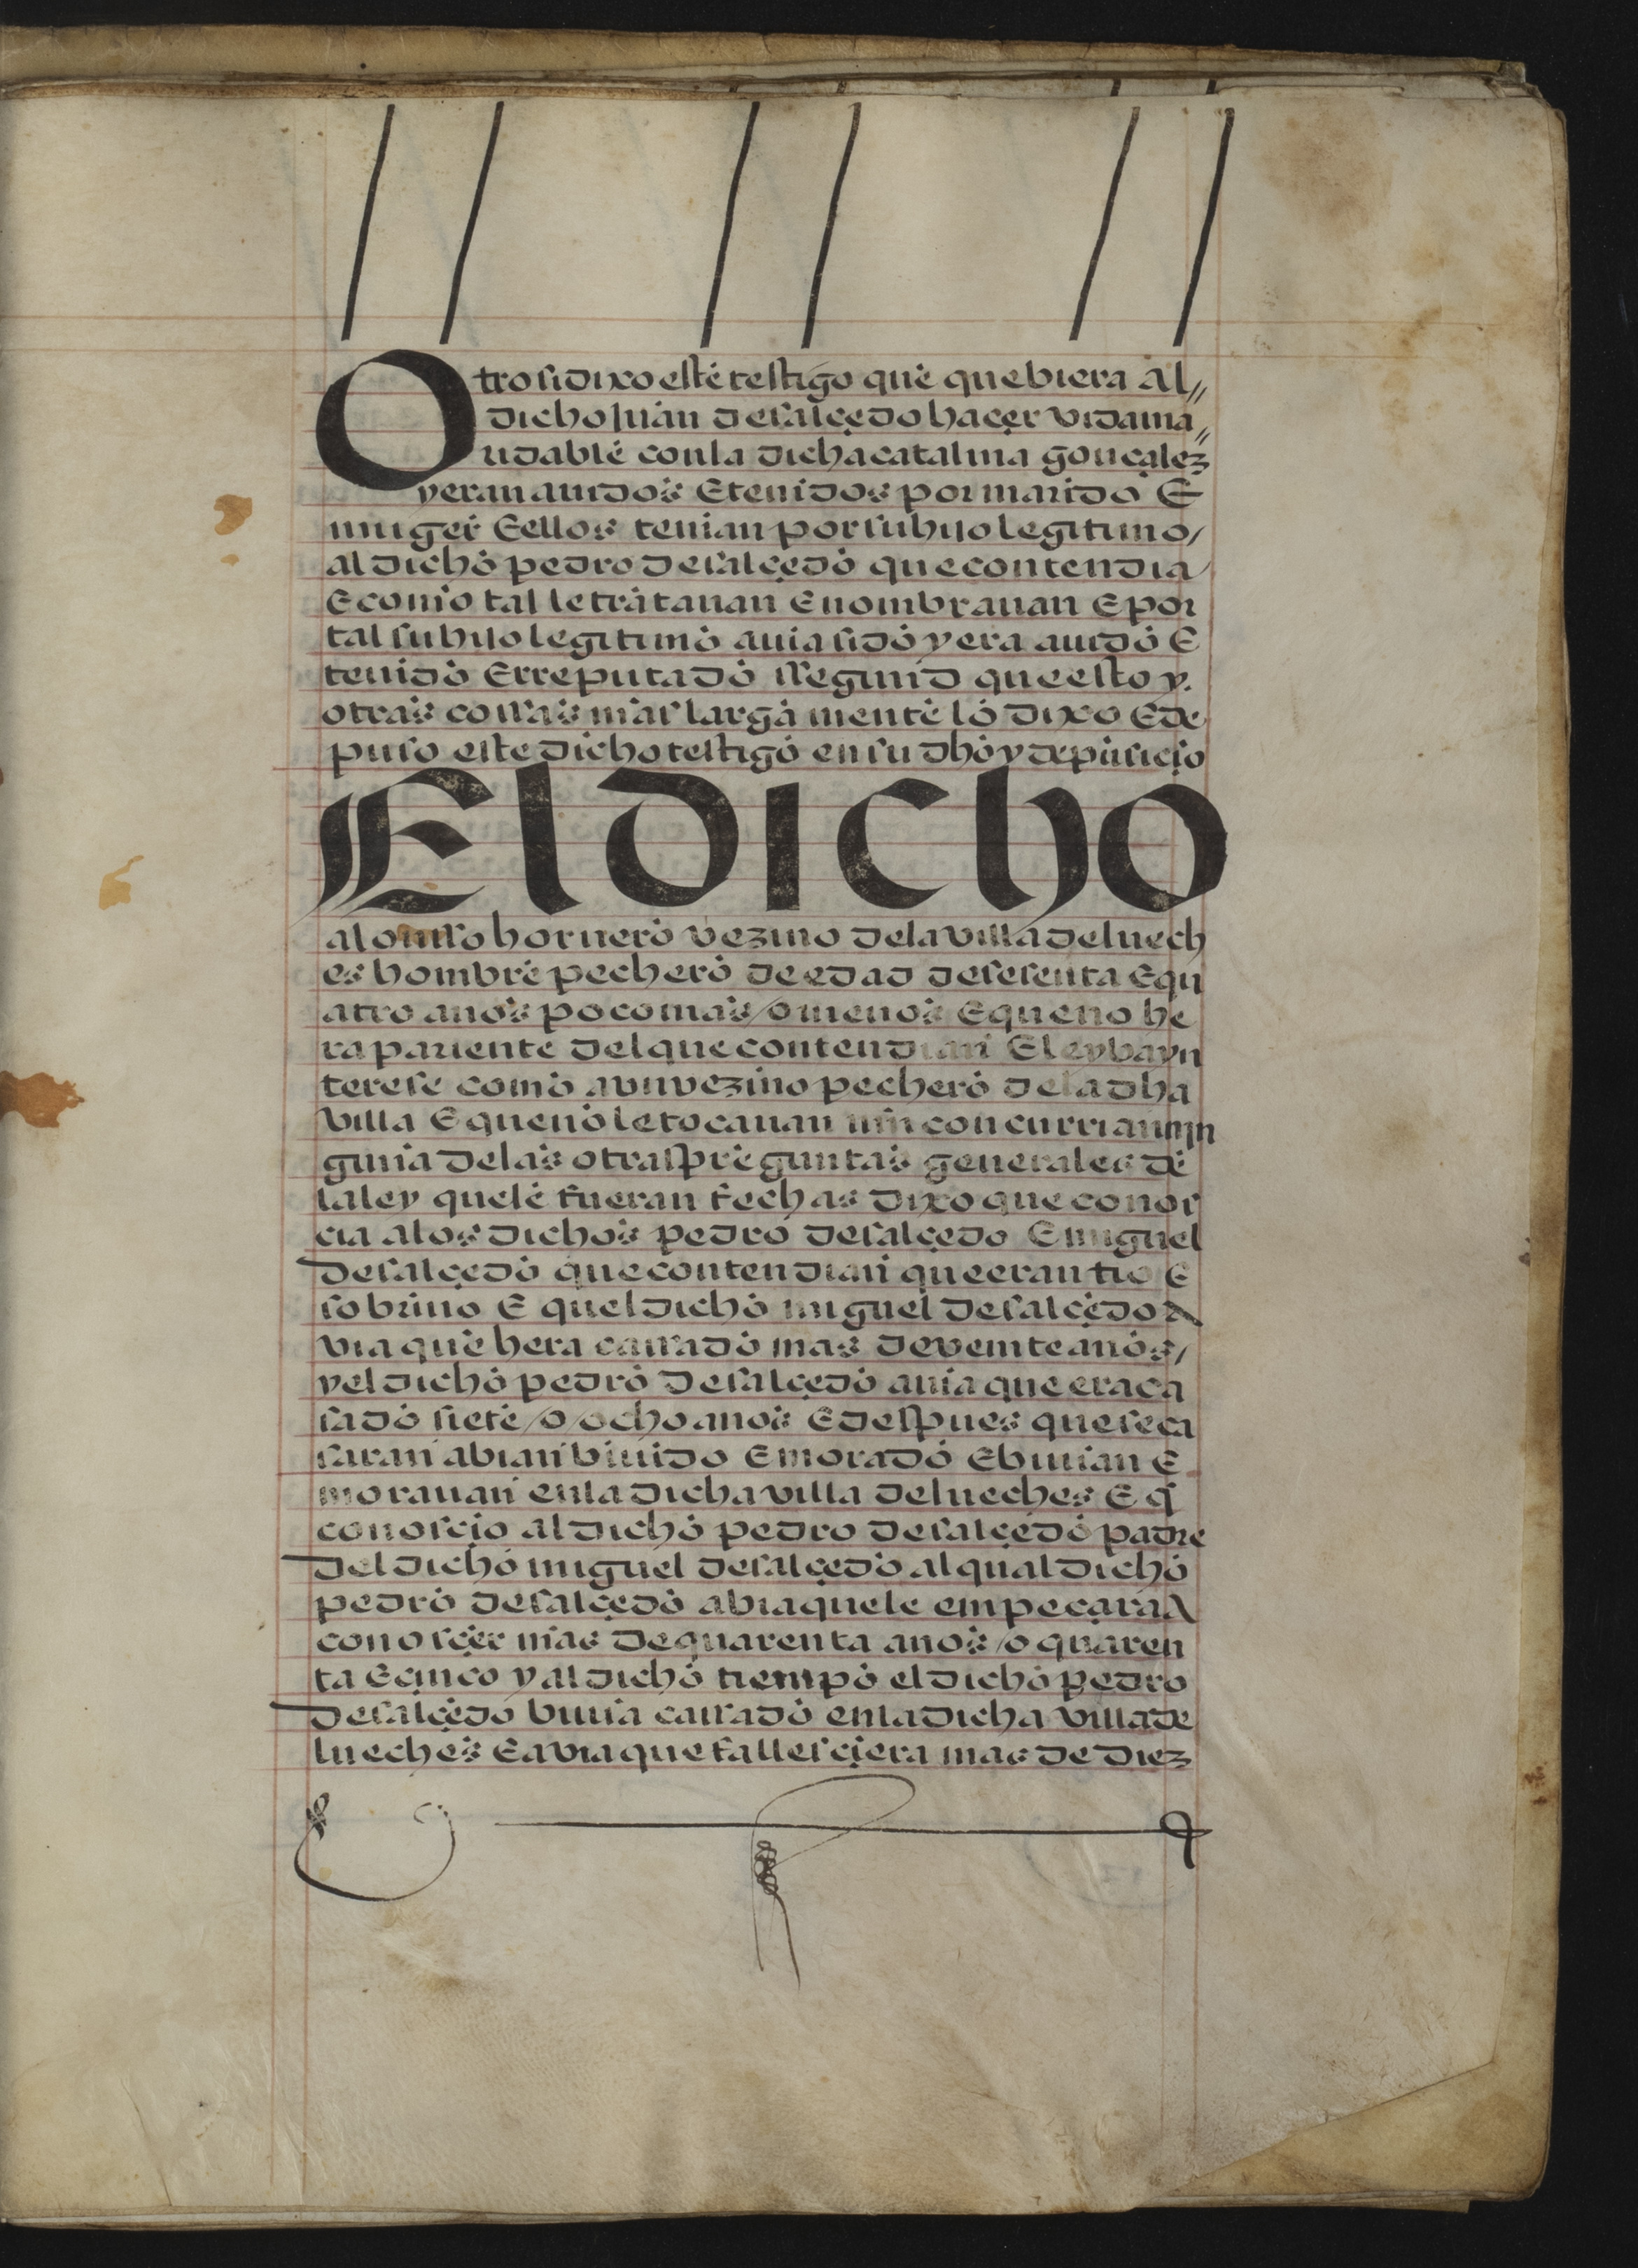 Otrosi dixo este testigo que que biera al//
dicho Juan de salçedo haçer vida ma//
ridable con la dicha catalina gonçalez
y eran auidos E tenidos por marido E
muger E ellos tenian por su hijo legitimo/
al dicho pedro de salçedo que contendia
E como tal le tratauan E nombrauan E por
tal su hijo legitimo auia sido y era auido E
tenido E rreputado ssegund que esto y.
otras cossas mas larga mente lo dixo E de
puso este dicho testigo en su dho y depusiçio
El dicho
alonsso hornero vezino de la villa de luech
es hombre pechero de edad de sesenta E qu
atro anos poco mas / o menos E que no he
ra pariente del que contendian E ley bayn
terese como a vn vezino pechero de la dha
villa E que no le tocauan nin concurrian nin
guna de las otras preguntas generales de
la ley que le fueran fechas dixo que conos
cia a los dichos pedro de salçedo E miguel
de salçedo que contendian que eran tio E
sobrino E quel dicho miguel de salçedo a
via que hera cassado mas de veinte anos/
y el dicho pedro de salçedo auia que era ca
sado siete / o / ocho anos E despues que se ca
saran abian biuido E morado E biuian E
morauan en la dicha villa de lueches E q̃
conosçio al dicho pedro de salçedo padre
del dicho miguel de salçedo al qual dicho
pedro de salçedo abia que le empeçara a
conosçer mas de quarenta anos / o quaren
ta E çinco y al dicho tiempo el dicho pedro
de salçedo biuia cassado en la dicha villa de
lueches E avia que fallesçiera mas de diez